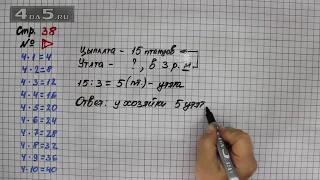 4a5.ru
Стр. 38
№ 1
4·1=4
4·2=8
4·3=12
4·4=16
4·5=20
4·6=24
4·7=28
4·8=32
4·9=36
4·10=40
Цыплята - 15 птенцов
Утята - ?, в 3 р. м
15:3=5(пт.)-утята
Ответ: у хозяйки 5 утят